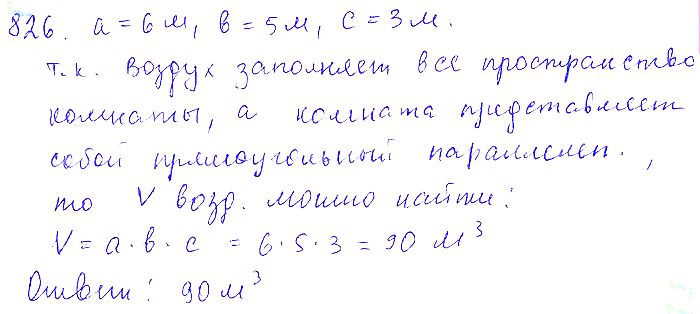 826. a = 6 м, в = 5 м, с = 3 м.
т.к. воздух заполняет все пространство
комнаты, а комната представляет
собой прямоугольный параллелеп.,
то V возд. можно найти:
V = a · в · с = 6 · 5 · 3 = 90 м³
Ответ: 90 м³